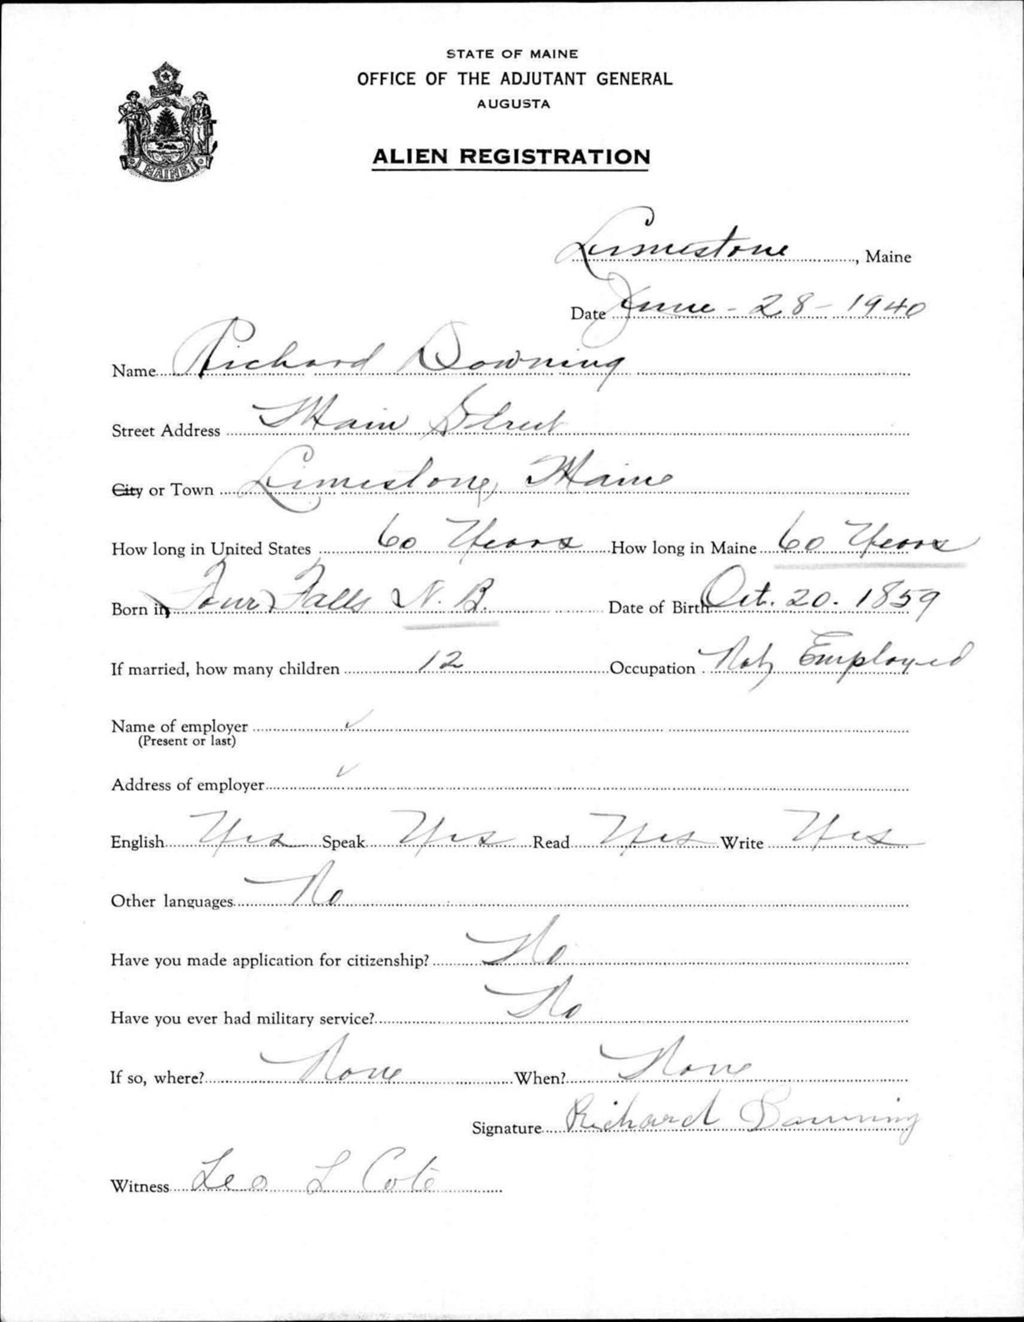 STATE OF MAINE
OFFICE OF THE ADJUTANT GENERAL
AUGUSTA
ALIEN REGISTRATION
MAINE
Limestone, Maine
Date June - 28 - 1940
Name Richard Downing
Street Address Main Street
City or Town Limestone, Maine
How long in United States 60 Years How long in Maine 60 Years
Born in Four Falls N. B. Date of Birth Oct. 20. 1859
If married, how many children 12 Occupation Not Employed
Name of employer ✓
(Present or last)
Address of employer ✓
English Yes Speak Yes Read Yes Write Yes
Other languages No
Have you made application for citizenship? No
Have you ever had military service? No
If so, where? None When? None
Signature Richard Downing
Witness Leo L Cote